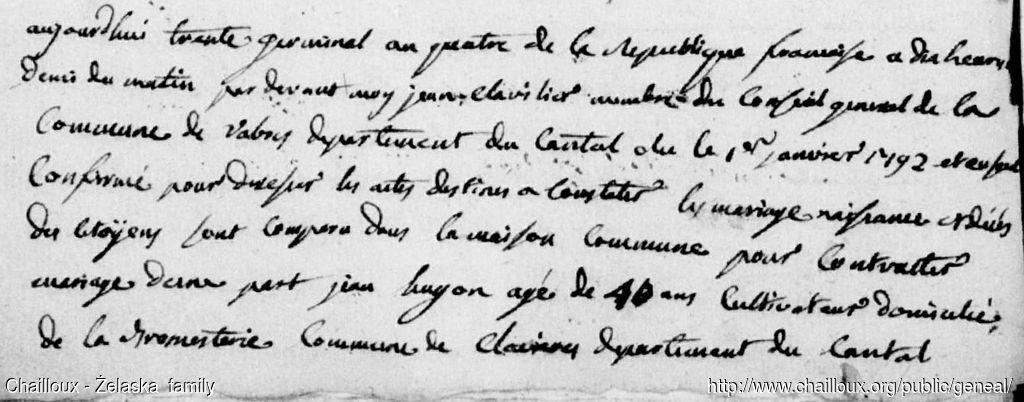 aujourdhui trente germinal an quatre de la Republique francaise a dix heures
demi du matin par devant moy jean Clavilier membre du Conseil general de la
Commune de Vabres departement du Cantal elu le 1er janvier 1792 et ensuite
Confirmé pour dresser les actes destines a Constater les mariage naissance et déces
des Citoyens sont Comparu dans la maison Commune pour Contracter
mariage dune part jean hugon agé de 40 ans Cultivateur domicilié
de la Commune de Clavieres departement du Cantal
Chailloux - Żelaska family
http://www.chailloux.org/public/geneal/